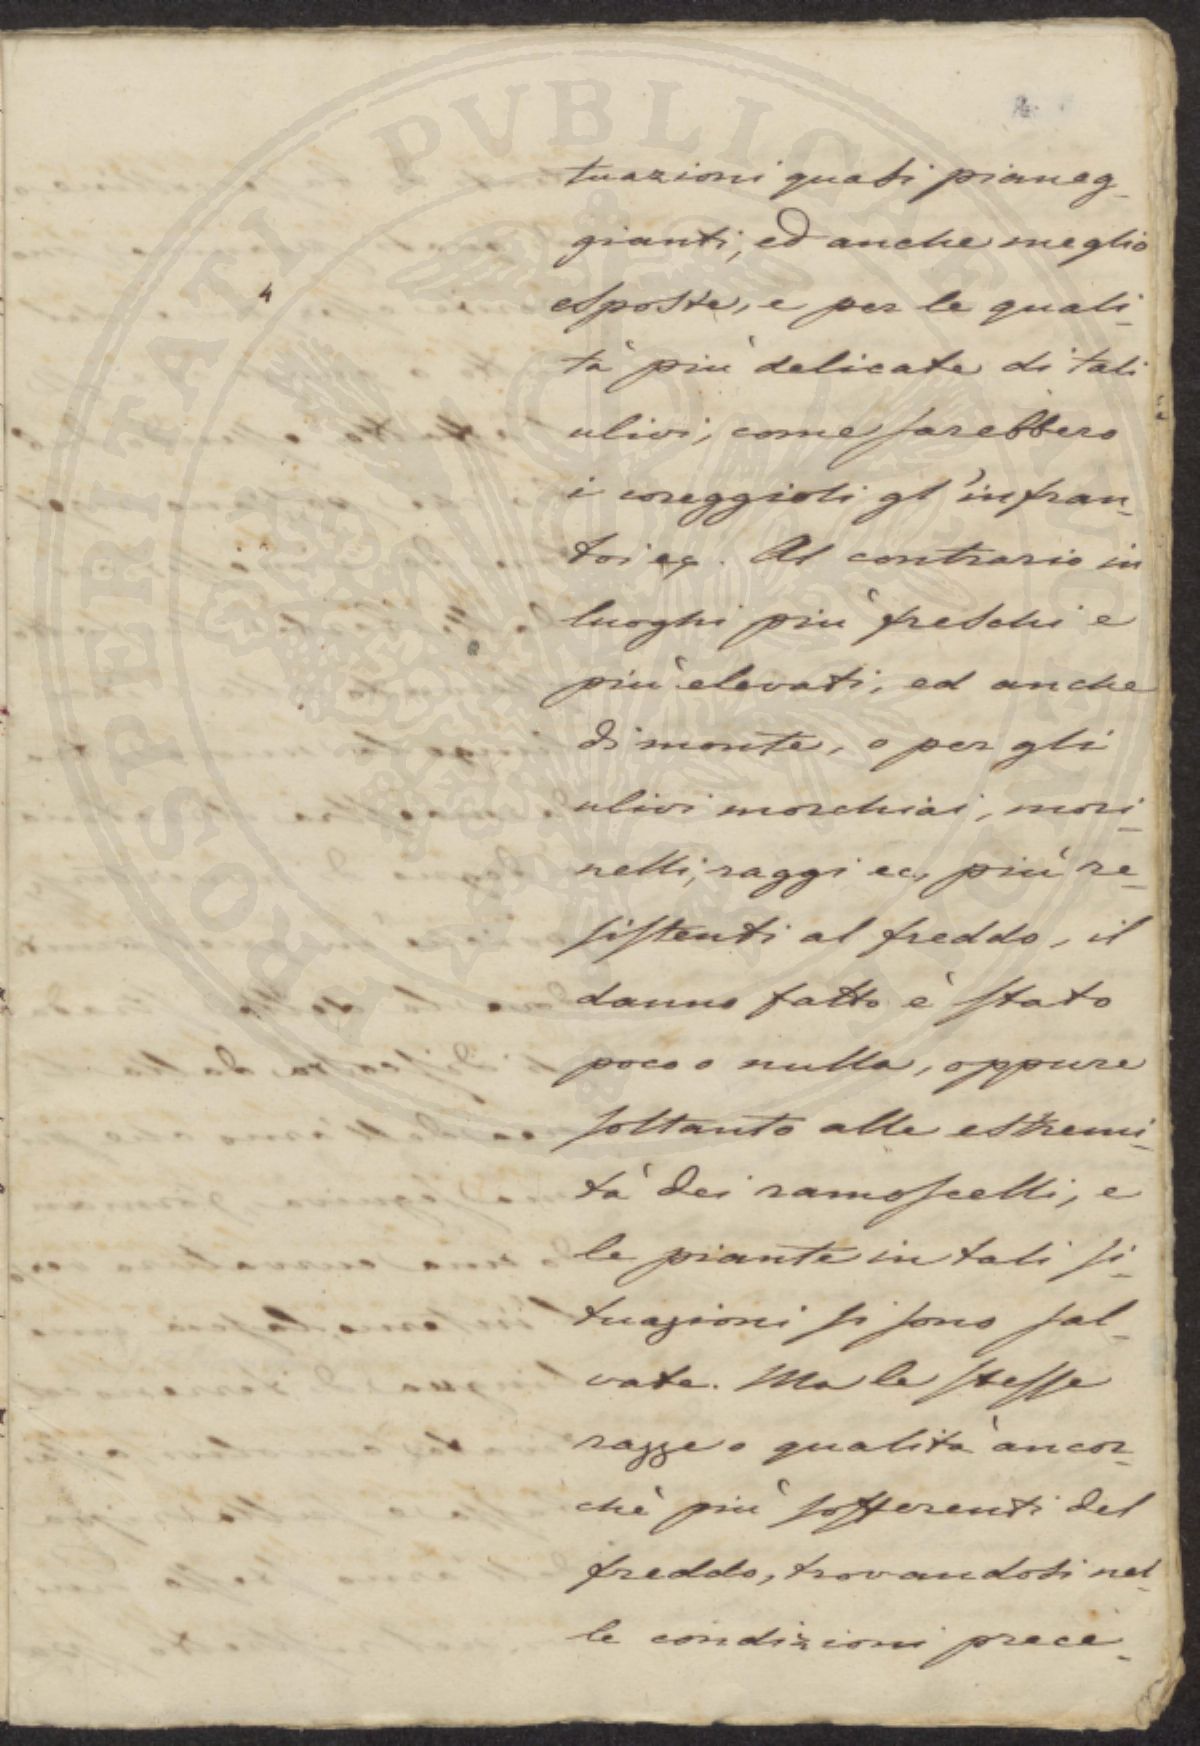 PROSPERITATI PVBLICAE AVGENDAE
tuazioni quasi pianeg-
gianti, ed anche meglio
esposte, e per le quali-
tà più delicate di tali
ulivi, come sarebbero
i coreggioli gl'infran-
toi ec. Al contrario in
luoghi più freschi e
più elevati, ed anche
di monte, o per gli
ulivi morchiai, mori-
nelli, raggi ec, più re-
sistenti al freddo, il
danno fatto è stato
poco o nulla, oppure
soltanto alle estremi-
tà dei ramoscelli, e
le piante in tali si-
tuazioni si sono sal-
vate. Ma le stesse
razze o qualità ancor-
chè più sofferenti del
freddo, trovandosi nel-
le condizioni prece-